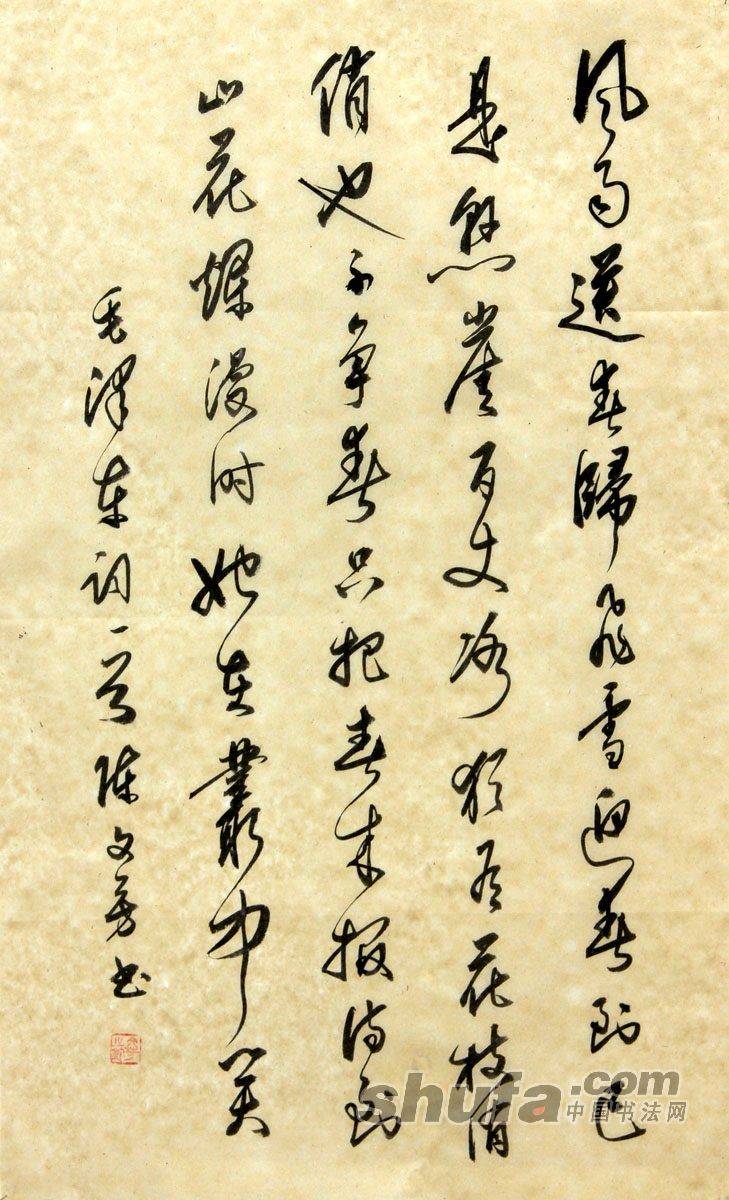 风雨送春歸飛雪迎春到已
是懸崖百丈冰猶有花枝俏
俏也不争春只把春来报待到
山花爛漫时她在叢中笑
毛澤东词一首陈文芳书
shufa.com
中国书法网